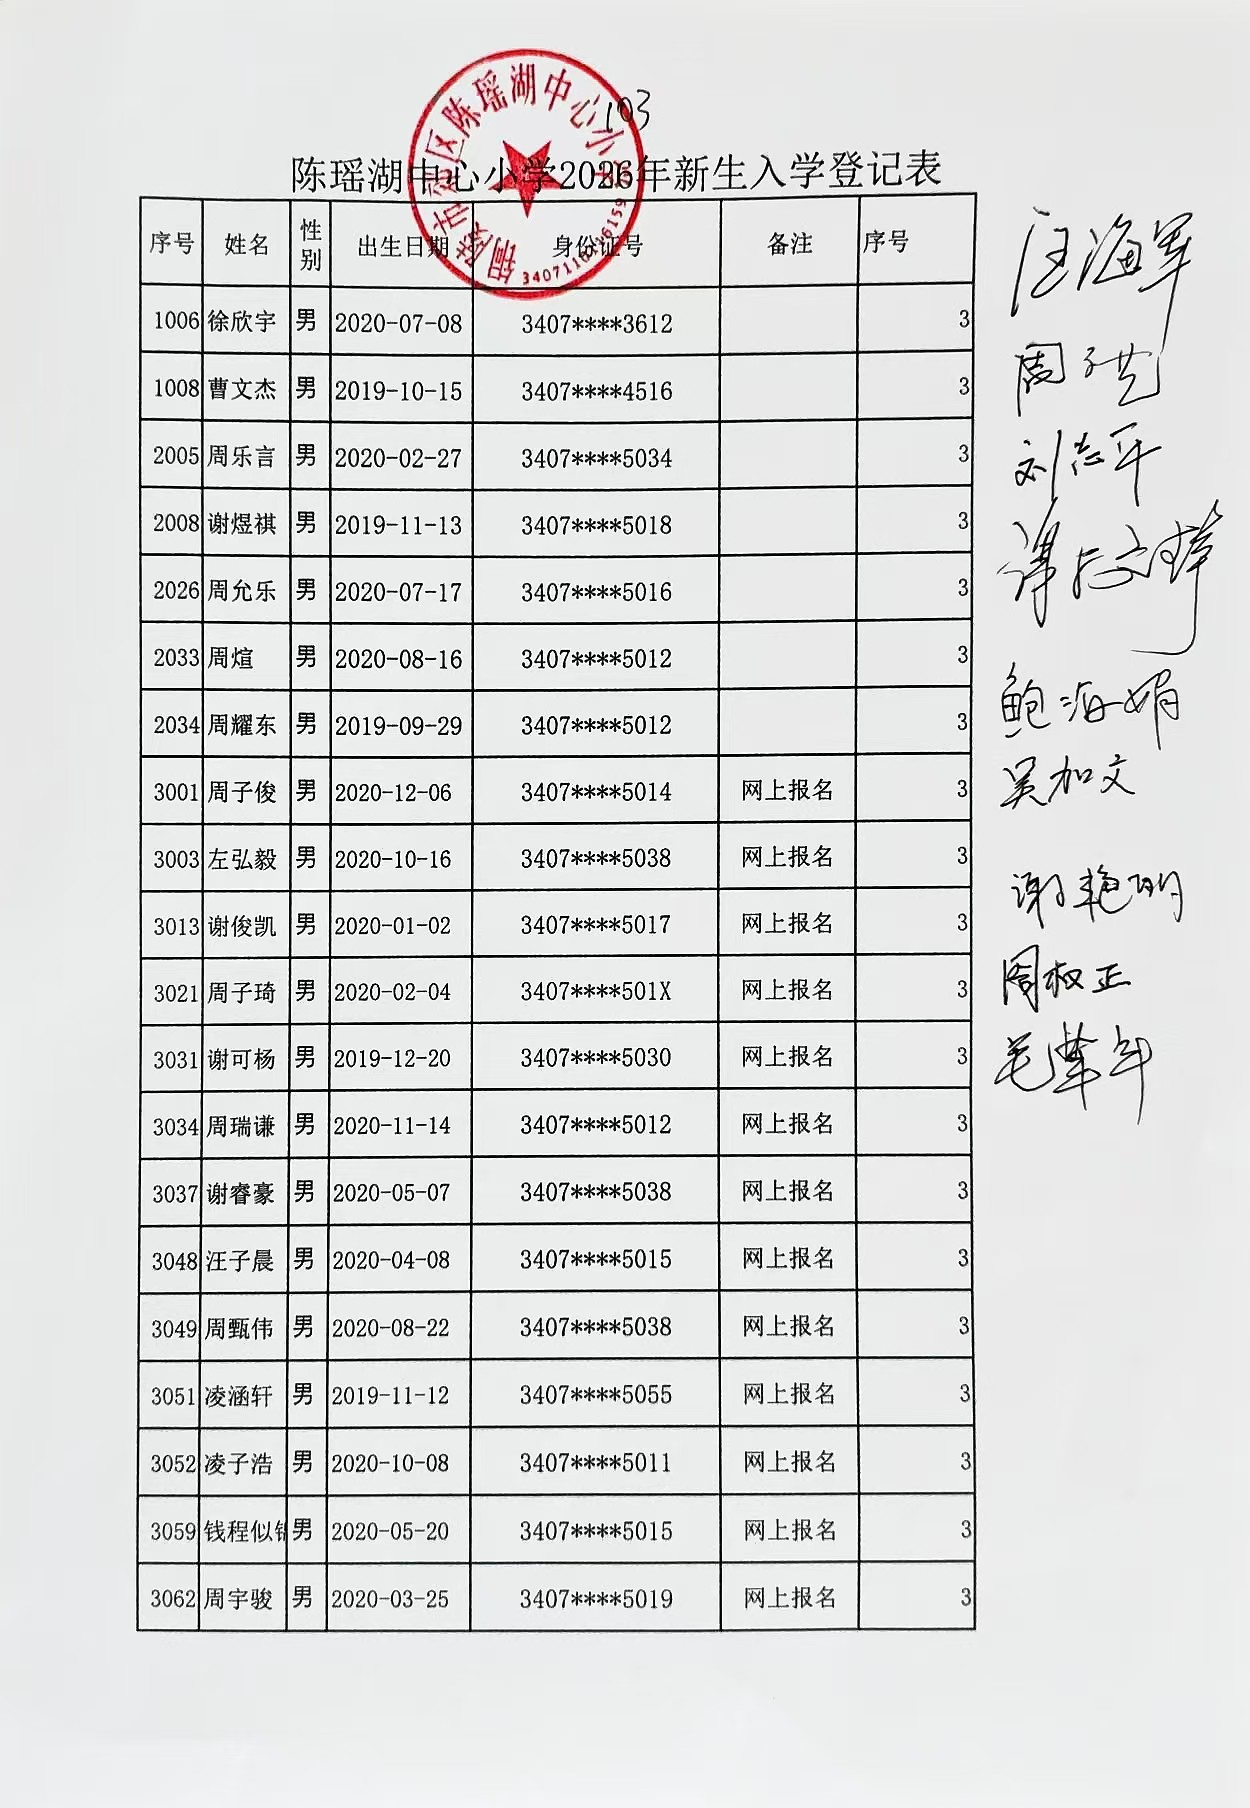 103
陈瑶湖中心小学2026年新生入学登记表
区陈瑶湖中心小
序号 姓名 性别 出生日期 身份证号 备注 序号
1006 徐欣宇 男 2020-07-08 3407****3612 3
1008 曹文杰 男 2019-10-15 3407****4516 3
2005 周乐言 男 2020-02-27 3407****5034 3
2008 谢煜祺 男 2019-11-13 3407****5018 3
2026 周允乐 男 2020-07-17 3407****5016 3
2033 周煊 男 2020-08-16 3407****5012 3
2034 周耀东 男 2019-09-29 3407****5012 3
3001 周子俊 男 2020-12-06 3407****5014 网上报名 3
3003 左弘毅 男 2020-10-16 3407****5038 网上报名 3
3013 谢俊凯 男 2020-01-02 3407****5017 网上报名 3
3021 周子琦 男 2020-02-04 3407****501X 网上报名 3
3031 谢可杨 男 2019-12-20 3407****5030 网上报名 3
3034 周瑞谦 男 2020-11-14 3407****5012 网上报名 3
3037 谢睿豪 男 2020-05-07 3407****5038 网上报名 3
3048 汪子晨 男 2020-04-08 3407****5015 网上报名 3
3049 周甄伟 男 2020-08-22 3407****5038 网上报名 3
3051 凌涵轩 男 2019-11-12 3407****5055 网上报名 3
3052 凌子浩 男 2020-10-08 3407****5011 网上报名 3
3059 钱程似 男 2020-05-20 3407****5015 网上报名 3
3062 周宇骏 男 2020-03-25 3407****5019 网上报名 3
汪海军
刘志平
鲍海娟
吴加文
谢艳明
周权正